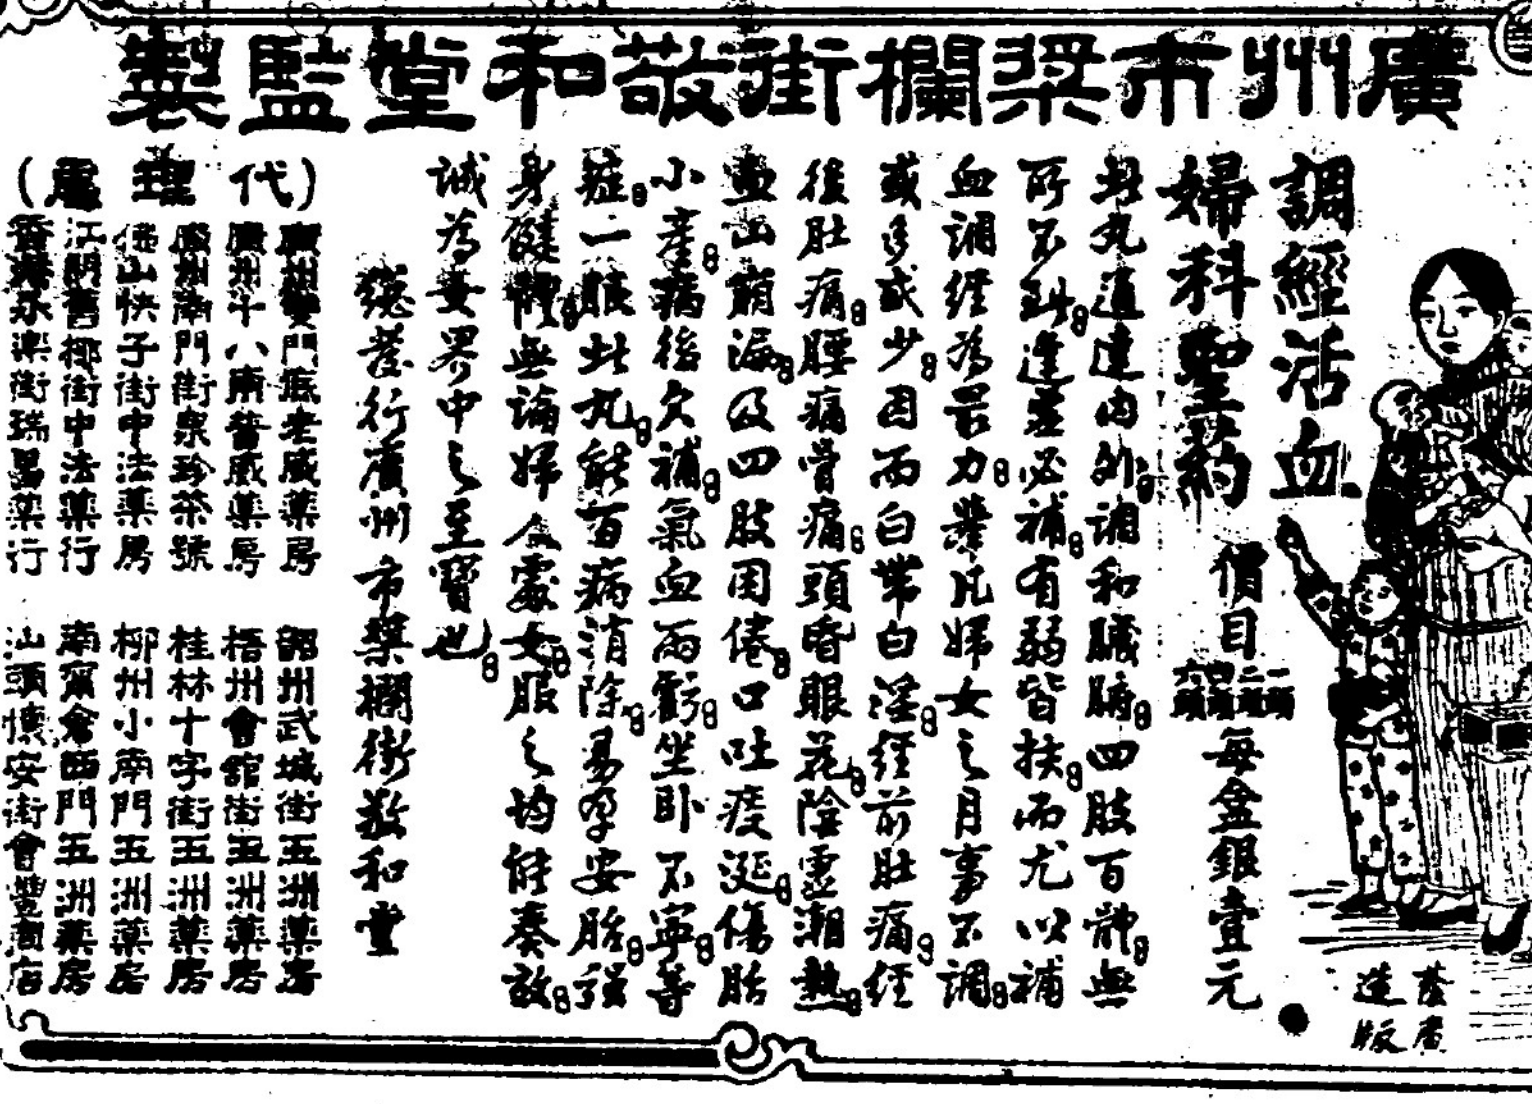 廣州市槳欄街敬和堂監製
調經活血
婦科聖葯
價目 每盒銀壹元
此丸通達內外調和臟腑四肢百体無
所不到逢差必補有弱皆扶而尤以補
血調經為最力業凡婦女之月事不調
或多或少因而白帶白淫經前肚痛經
後肚痛腰痛骨痛頭昏眼花陰虛潮熱
血山崩漏及四肢困倦口吐痰涎傷胎
小產病後欠補氣血兩虧坐卧不寧等
症一服此丸能百病消除易孕安胎强
身健體無論婦人處女服之均能奏效
誠為女界中之至寶也
總發行廣州市槳欄街敬和堂
(代理處)
廣州雙門底老威藥房
廣州十八甫普威藥房
廣州南門街泉珍茶號
佛山快子街中法藥房
江門舊椰街中法藥行
香港永樂街瑞昌藥行
韶州武城街五洲藥房
梧州會館街五洲藥房
桂林十字街五洲藥房
柳州小南門五洲藥房
南寗倉西門五洲藥房
汕頭懷安街會豐商店
造版